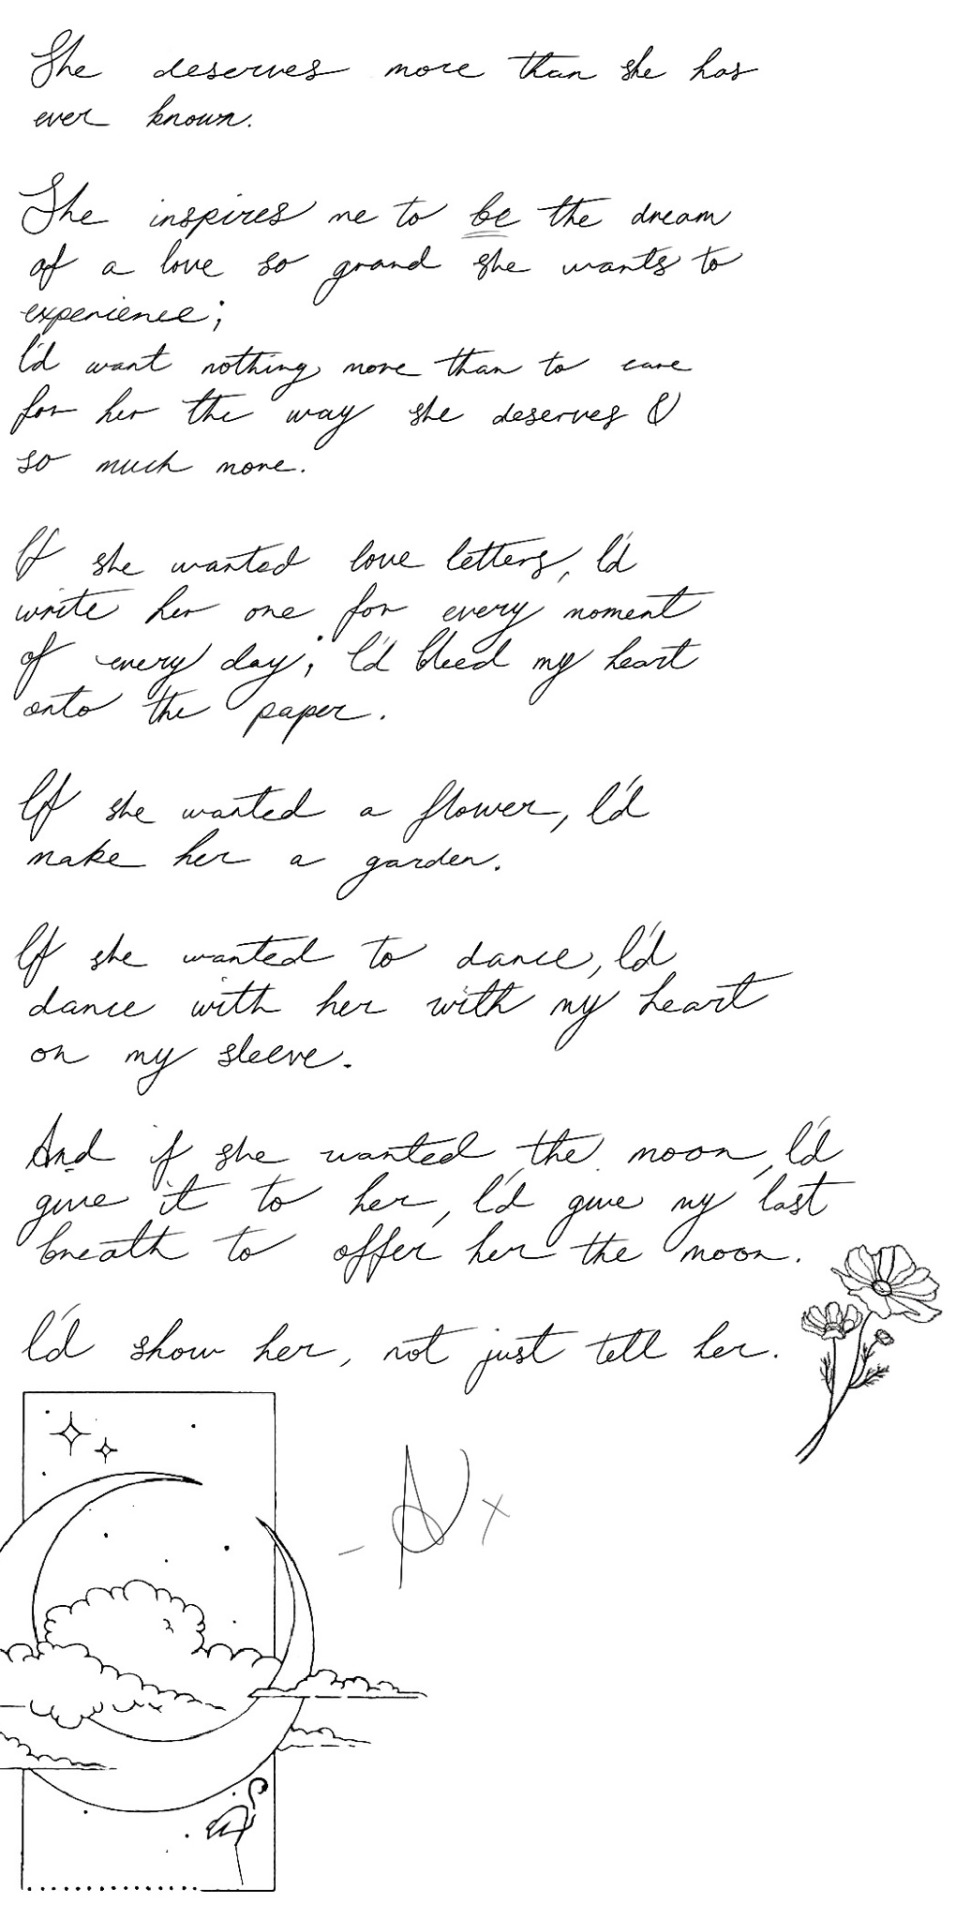 She deserves more than she has
ever known.
She inspires me to be the dream
of a love so grand she wants to
experience;
I'd want nothing more than to care
for her the way she deserves &
so much more.
If she wanted love letters, I'd
write her one for every moment
of every day; I'd bleed my heart
onto the paper.
If she wanted a flower, I'd
make her a garden.
If she wanted to dance, I'd
dance with her with my heart
on my sleeve.
And if she wanted the moon, I'd
give it to her, I'd give my last
breath to offer her the moon.
I'd show her, not just tell her.
- A x